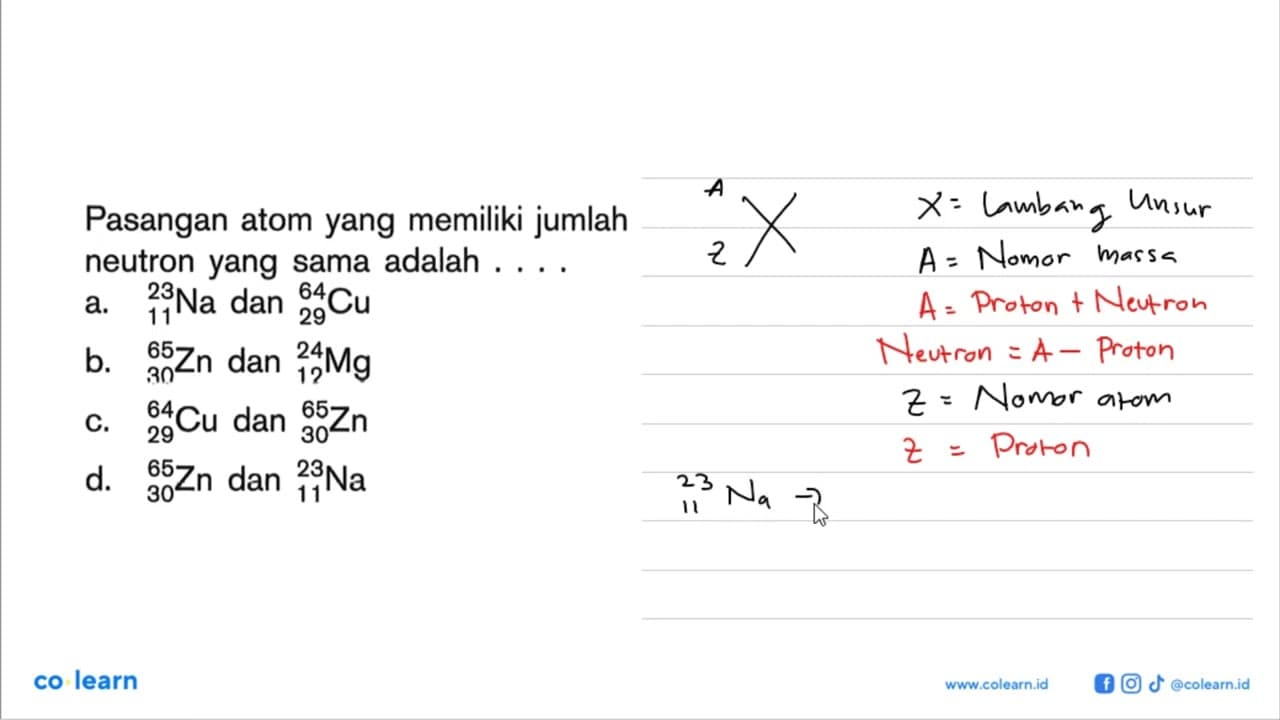 Pasangan atom yang memiliki jumlah
neutron yang sama adalah . . . .
a. ²³₁₁Na dan ⁶⁴₂₉Cu
b. ⁶⁵₃₀Zn dan ²⁴₁₂Mg
c. ⁶⁴₂₉Cu dan ⁶⁵₃₀Zn
d. ⁶⁵₃₀Zn dan ²³₁₁Na
A
Z X
X = Lambang Unsur
A = Nomor massa
A = Proton + Neutron
Neutron = A - Proton
Z = Nomor atom
Z = Proton
²³₁₁Na →
co learn
www.colearn.id
@colearn.id